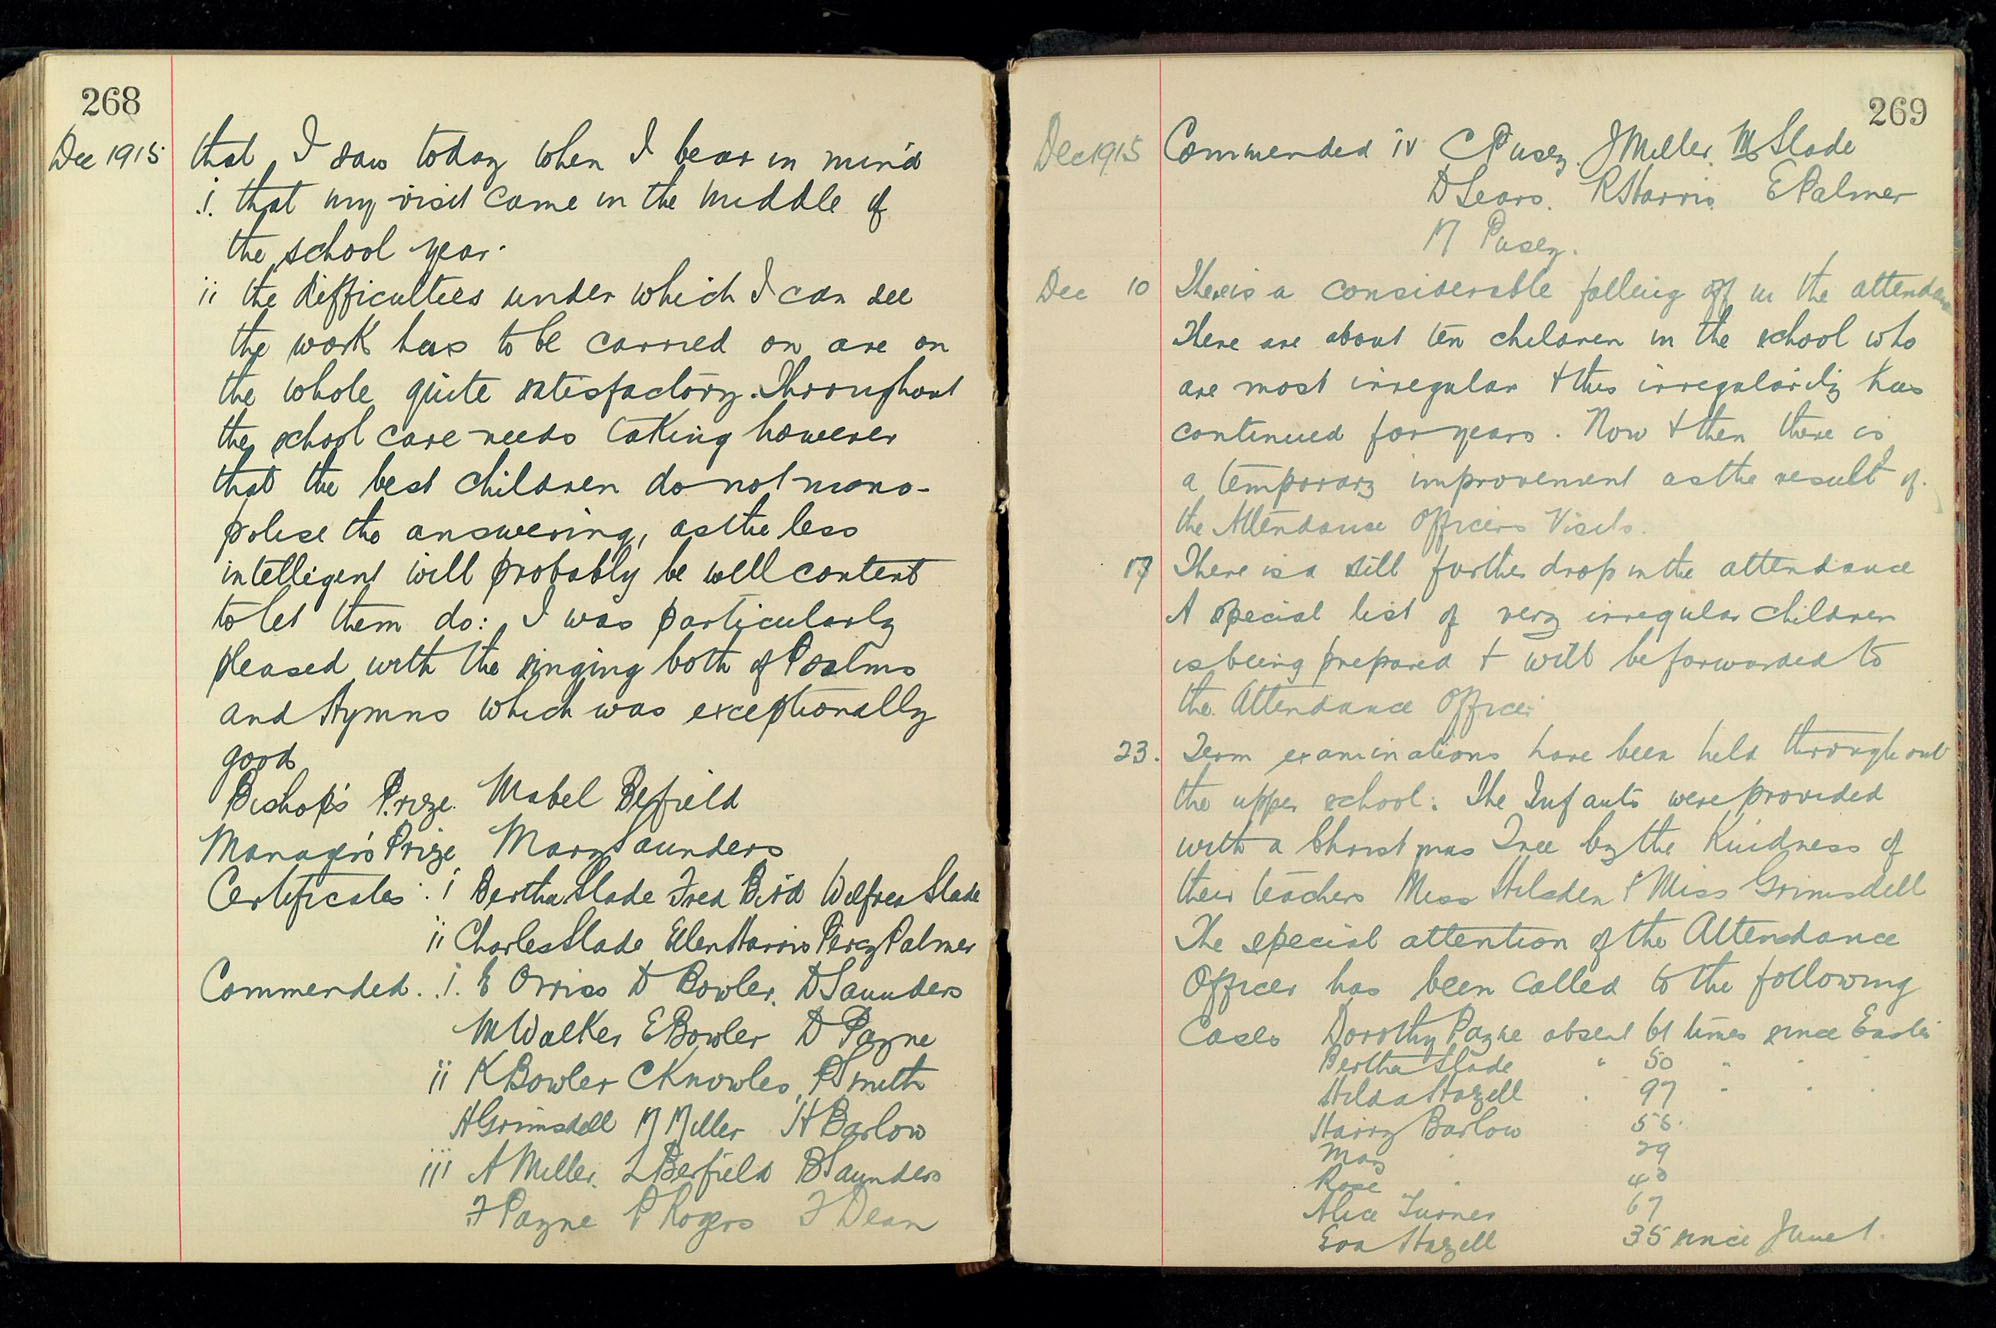 268
Dec 1915
that I saw today when I bear in mind
i. that my visit came in the middle of
the school year.
ii the difficulties under which I can see
the work has to be carried on are on
the whole quite satisfactory. Throughout
the school care needs taking however
that the best children do not mono-
polise the answering, as the less
intelligent will probably be well content
to let them do: I was particularly
pleased with the singing both of Psalms
and Hymns which was exceptionally
good
Bishop's Prize. Mabel Befield
Manager's Prize Mary Saunders
Certificates: i Bertha Slade Fred Bird Wilfred Slade
ii Charles Slade Ellen Harris Percy Palmer
Commended. i. E Orriss D Bowler. D Saunders
M Walker E Bowler D Payne
ii K Bowler C Knowles, P Smith
H Grimsdell M Miller H Barlow
iii A Miller. L Berfield B Saunders
F Payne P Rogers F Dean
269
Dec 1915
Commended iv C Pusey. J Miller. M Slade
D Sears. R Harris E Palmer
M Pusey.
Dec 10 There is a considerable falling off in the attendance
There are about ten children in the school who
are most irregular & this irregularity has
continued for years. Now & then there is
a temporary improvement as the result of
the Attendance Officers Visits.
17 There is a still further drop in the attendance
A special list of very irregular children
is being prepared & will be forwarded to
the Attendance Officer
23. Term examinations have been held throughout
the upper school. The Infants were provided
with a Christmas Tree by the Kindness of
their teachers Miss Hilsden & Miss Grimsdell
The special attention of the Attendance
Officer has been called to the following
Cases Dorothy Payne absent 61 times since Easter
Bertha Slade " 50 " " "
Hilda Hazell " 97 " " "
Harry Barlow 55.
May " 29
Rose " 40
Alice Turner 67
Eva Hazell 35 since June 1.